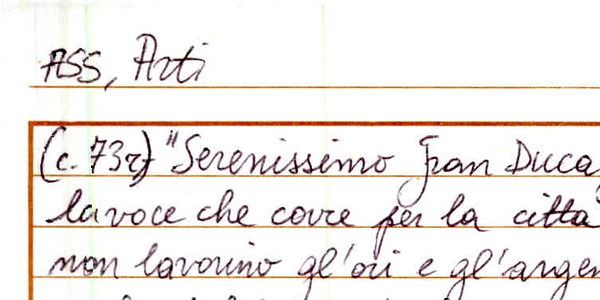 ASS, Arti
(c. 73r) "Serenissimo Gran Duca
la voce che corre per la città
non lavorino gl'ori e gl'argen